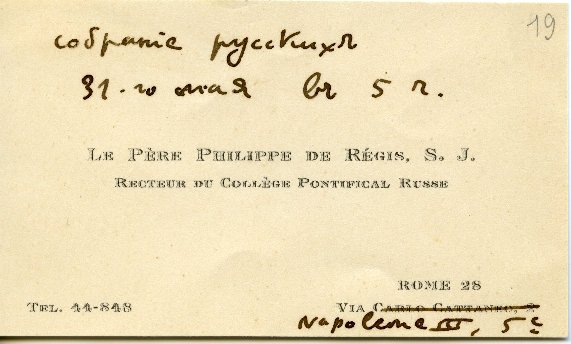 19
собрание русскихъ
31-го мая въ 5 ч.
LE PÈRE PHILIPPE DE RÉGIS, S. J.
RECTEUR DU COLLÈGE PONTIFICAL RUSSE
ROME 28
TEL. 44-848
VIA CARLO CATTANEO, 2
Napoleone III, 5c